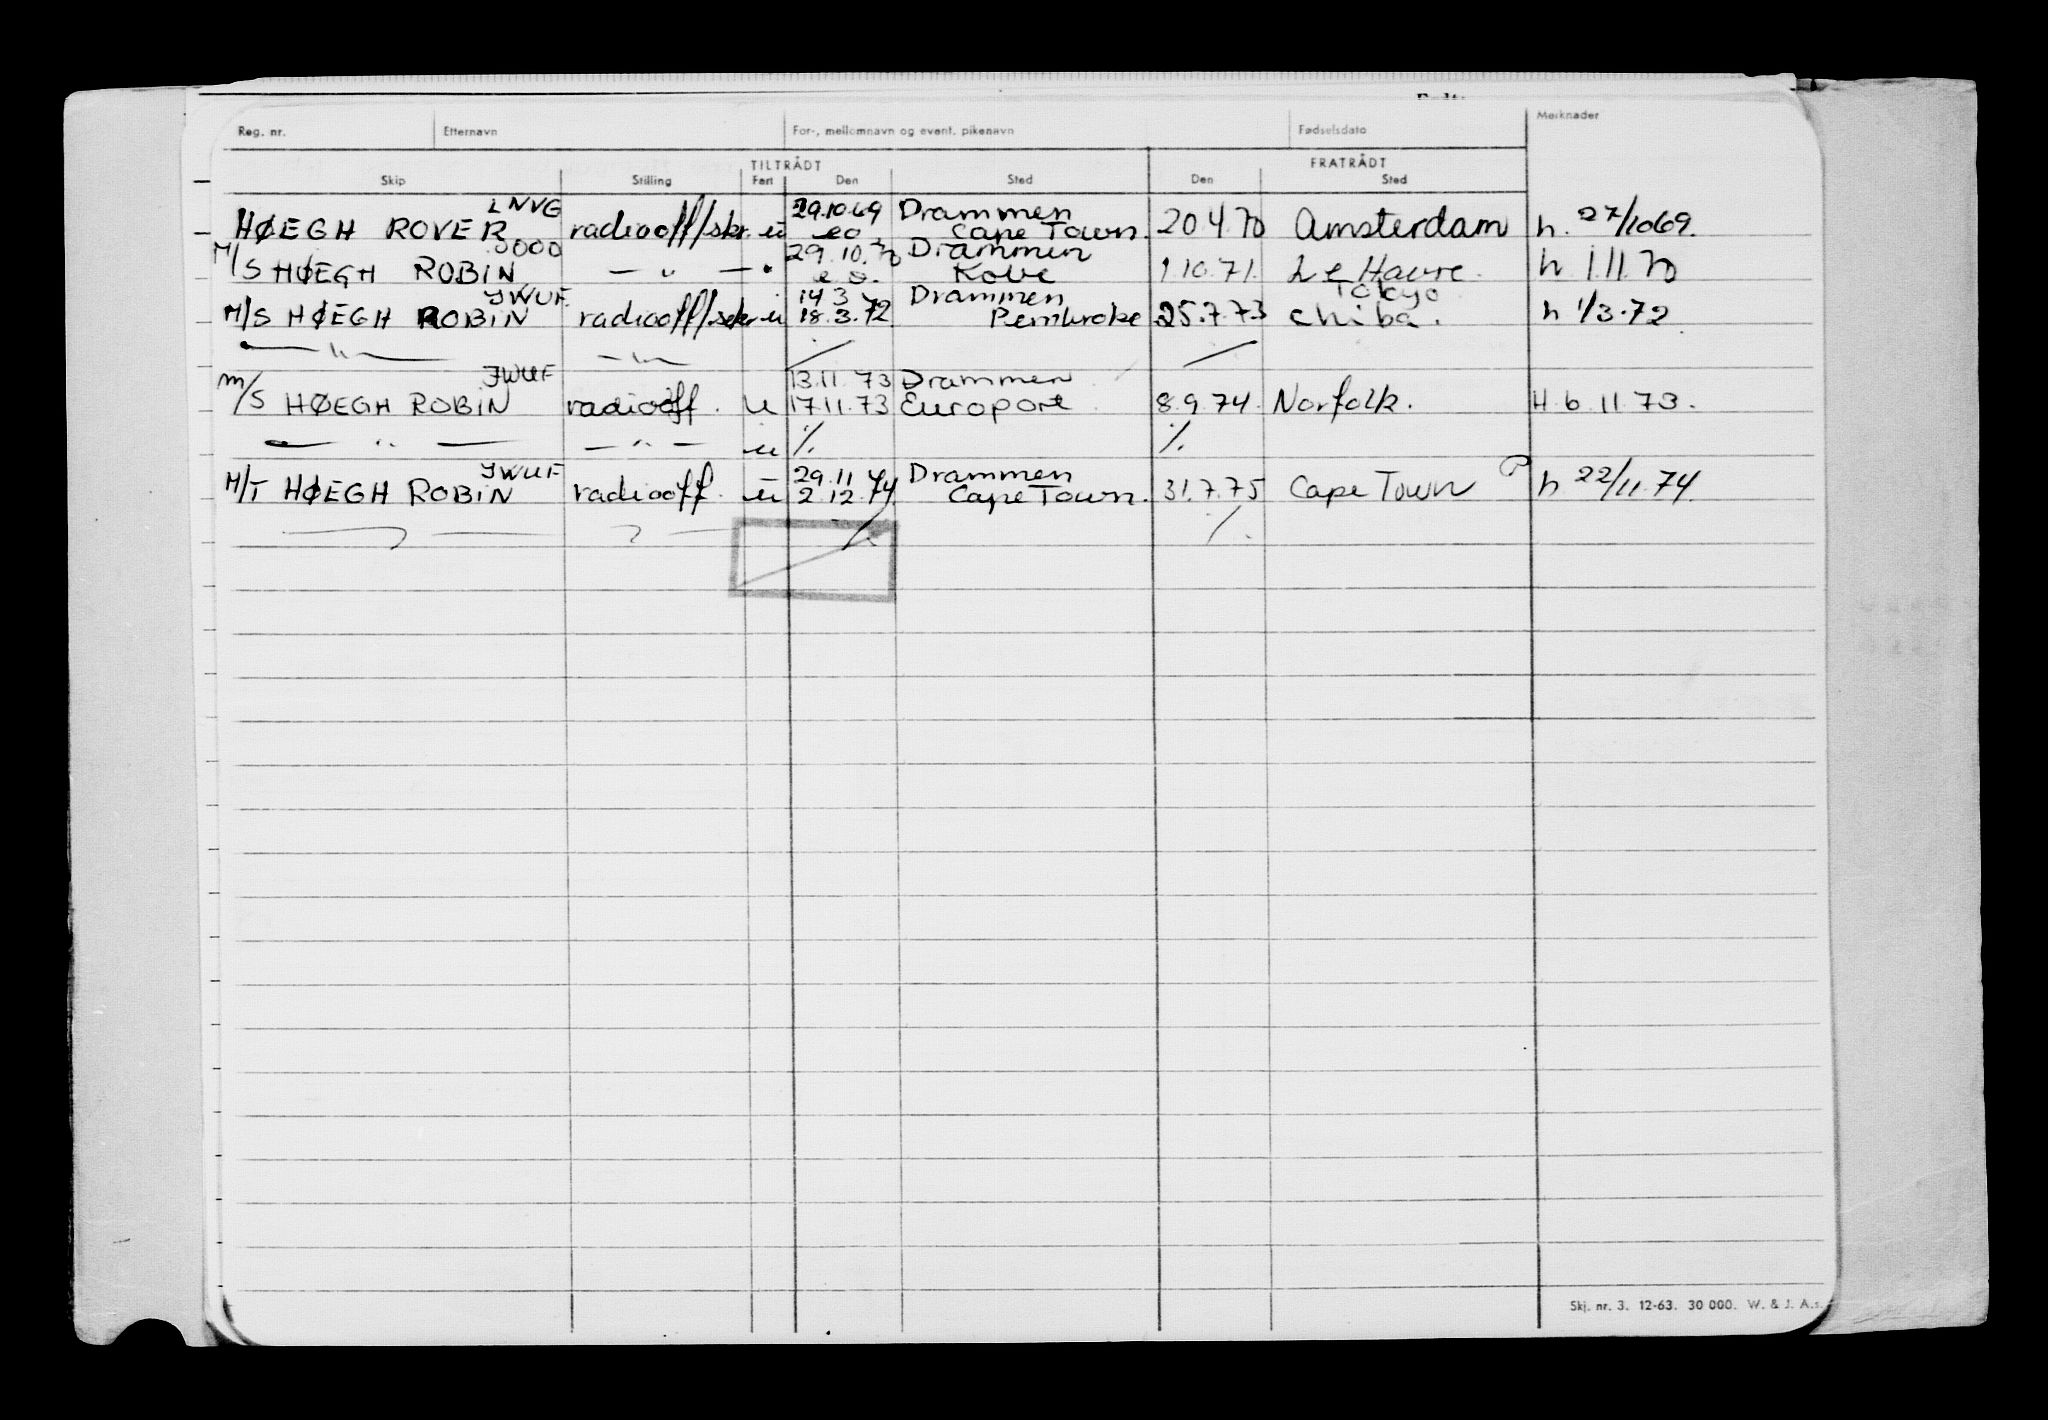 Reg. nr. Etternavn For-, mellomnavn og event. pikenavn Fødselsdato Merknader
TILTRÅDT FRATRÅDT
Skip Stilling Fart Den Sted Den Sted
LNVG 29.10.69 Drammen
HØEGH ROVER radiooff/skr. ü eo Cape Town. 20.4.70 Amsterdam h. 27/1069.
0000 29.10.70 Drammen
M/S HØEGH ROBIN — " — e.o. Kobe 1.10.71. Le Havre. h 1.11.70
JWUF 14 3 Drammen Tokyo
M/S HØEGH ROBIN radiooff/sekr ü 18.3.72 Pembroke 25.7.73 Chiba. h 1/3.72
— " — — " — / /
JWUF 13.11.73 Drammen
M/S HØEGH ROBIN radiooff. u 17.11.73 Europort 8.9.74. Norfolk. H. 6.11.73.
— " — — " — ü /. /.
JWUF 29.11.74 Drammen
M/T HØEGH ROBIN radiooff. ü 2.12.74. Cape Town. 31.7.75 Cape Town P h 22/11.74.
Skj. nr. 3. 12-63. 30 000. W. & J. A.s.